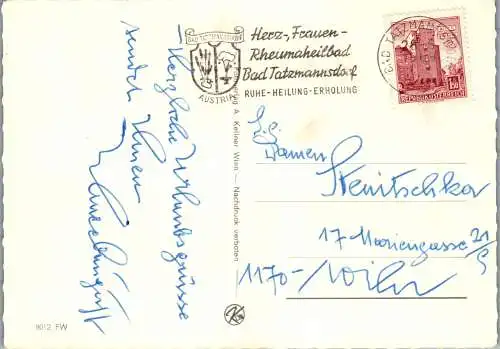 BAD TATZMANNSDORF
AUSTRIA
Herz-, Frauen-
Rheumaheilbad
Bad Tatzmannsdorf
RUHE-HEILUNG-ERHOLUNG
BAD TATZMANNSDORF
1.50
REPUBLIK ÖSTERREICH
Herzliche Urlaubsgrüsse
sendet Ihnen
A. Kellner Wien — Nachdruck verboten
Damen
Stenitschka
17 Mariengasse 21/9
1170 - Wien
8012 FW